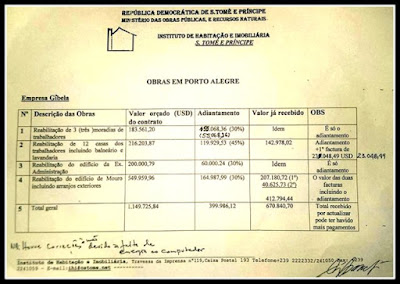 REPÚBLICA DEMOCRÁTICA DE S.TOMÉ E PRÍNCIPE
MINISTÉRIO DAS OBRAS PÚBLICAS, E RECURSOS NATURAIS.
INSTITUTO DE HABITAÇÃO E IMOBILIÁRIA
S. TOMÉ E PRÍNCIPE
OBRAS EM PORTO ALEGRE
Empresa Gibela
Nº Descrição das Obras Valor orçado (USD) do contrato Adiantamento Valor já recebido OBS
1 Reabilitação de 3 (três) moradias de trabalhadores 183.561,20 068,36 (30%) (55.068,36) Idem É só o adiantamento
2 Reabilitação de 12 casas dos trabalhadores incluindo balneário e lavandaria 216.203,87 119.929,53 (45%) 142.978,02 Adiantamento +1ª factura de 048,49 USD 23.048,49
3 Reabilitação do edifício da Ex. Administração 200.000,79 60.000.24 (30%) Idem É só o adiantamento
4 Reabilitação do edifício de Mouro incluindo arranjos exteriores 549.959,96 164.987,99 (30%) 207.180,72 (1ª) 40.625,73 (2ª) 412.794,44 O valor das duas facturas incluindo o adiantamento
5 Total geral 1.149.725,84 399.986,12 670.840,70 Total recebido por actualizar pode ter havido mais pagamentos
Houve correcções devido a falta de
energia no computador
Instituto de Habitação e Imobiliária, Travessa da Imprensa nº119,Caixa Postal 193 Telefone+239 2222332/241050